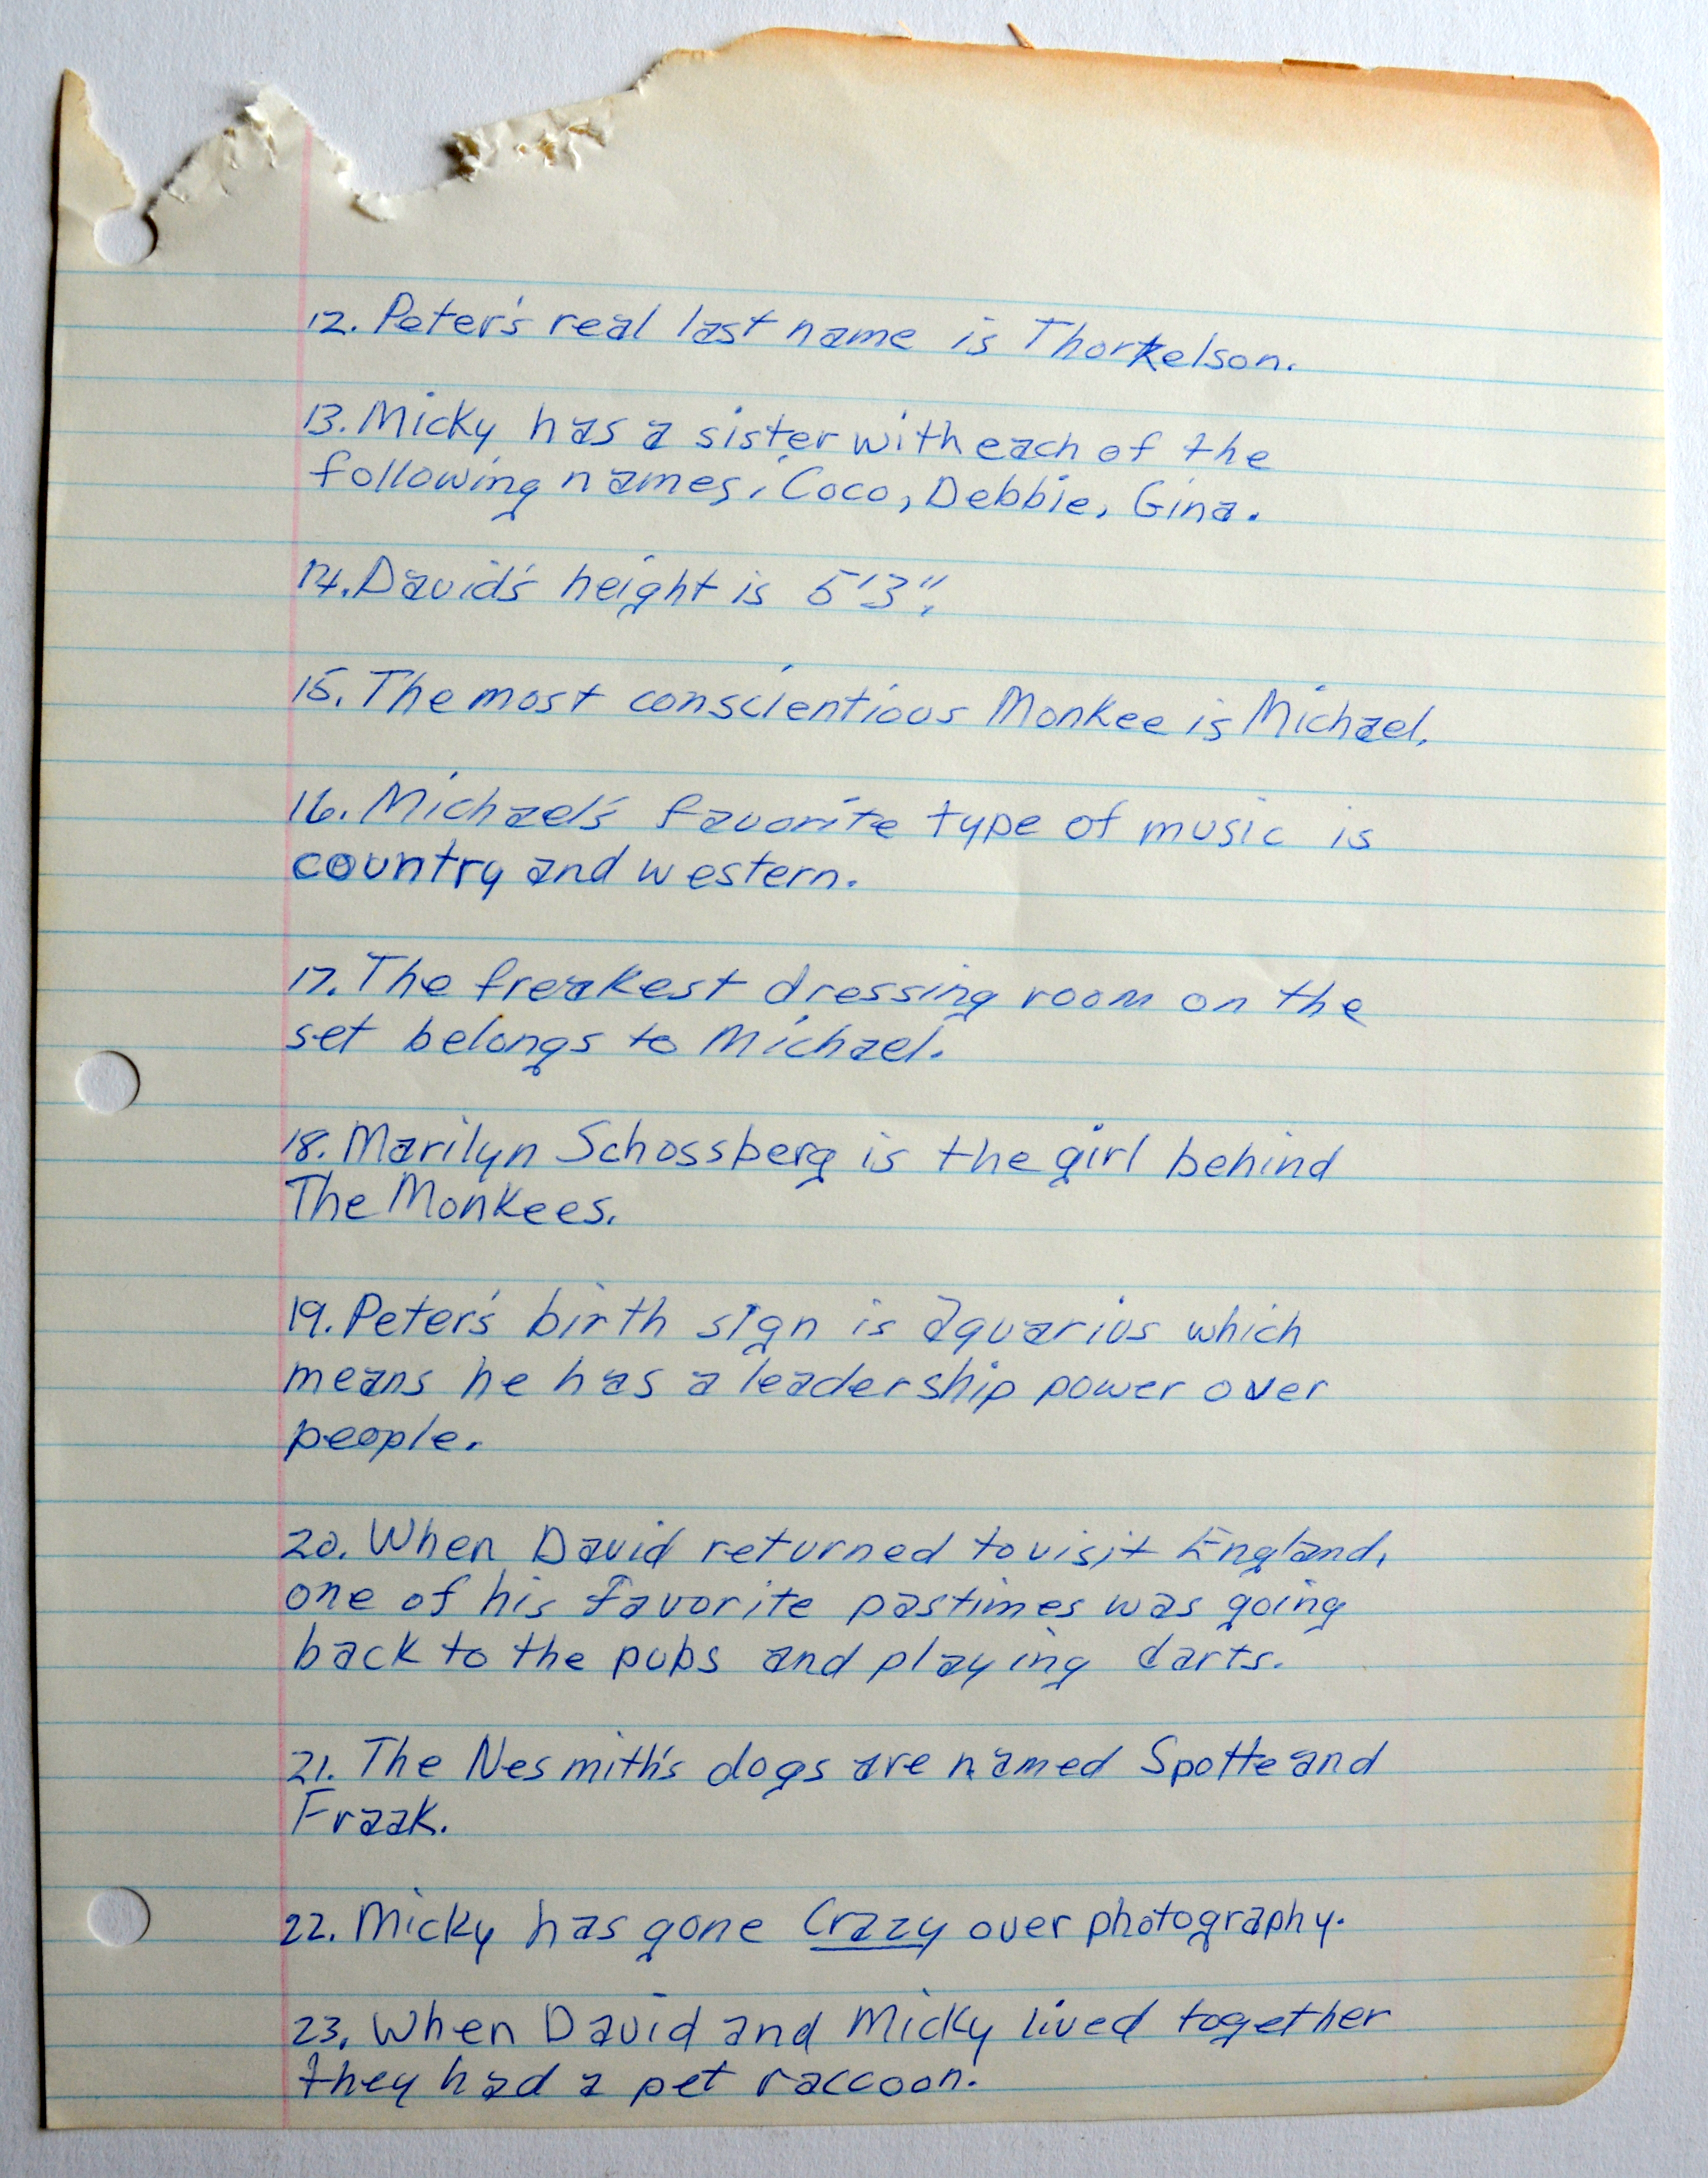 12. Peter's real last name is Thorkelson.
13. Micky has a sister with each of the
following names: Coco, Debbie, Gina.
14. David's height is 5'3".
15. The most conscientious Monkee is Michael.
16. Michael's favorite type of music is
country and western.
17. The freakest dressing room on the
set belongs to Michael.
18. Marilyn Schossberg is the girl behind
The Monkees.
19. Peter's birth sign is aquarius which
means he has a leadership power over
people.
20. When David returned to visit England,
one of his favorite pastimes was going
back to the pubs and playing darts.
21. The Nesmith's dogs are named Spotte and
Fraak.
22. Micky has gone Crazy over photography.
23. When David and Micky lived together
they had a pet raccoon.